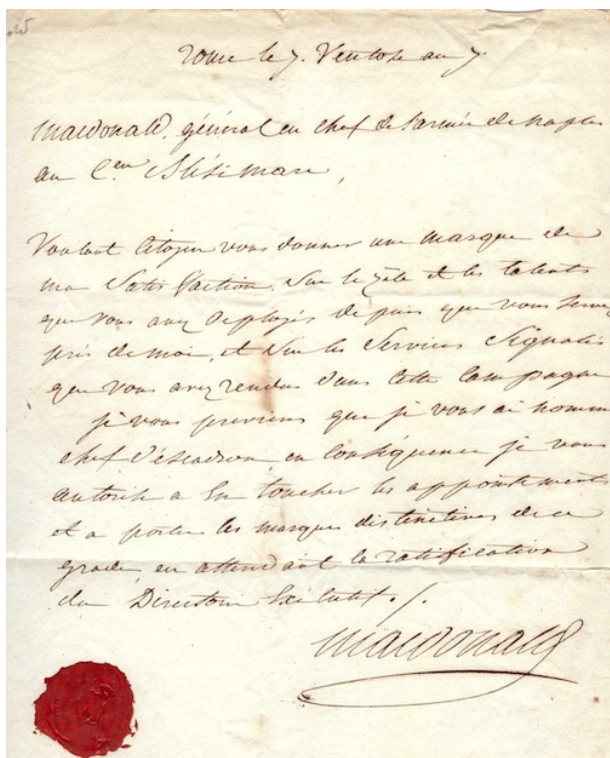 Rome le 7. Ventose an 7
Macdonald, général en chef de l'armée de Naples
au C.en
Voulant Citoyen vous donner une marque de
ma Satisfaction Sur le zèle et les talents
que vous avez déployés depuis que vous servez
près de moi, et Sur les Services Signalés
que vous avez rendus dans cette Campagne
je vous préviens que je vous ai nommé
chef d'escadron, en Conséquence je vous
autorise a En toucher les appointements
et a porter les marques distinctives de ce
grade, en attendant la ratification
du Directoire Exécutif ./.
Macdonald